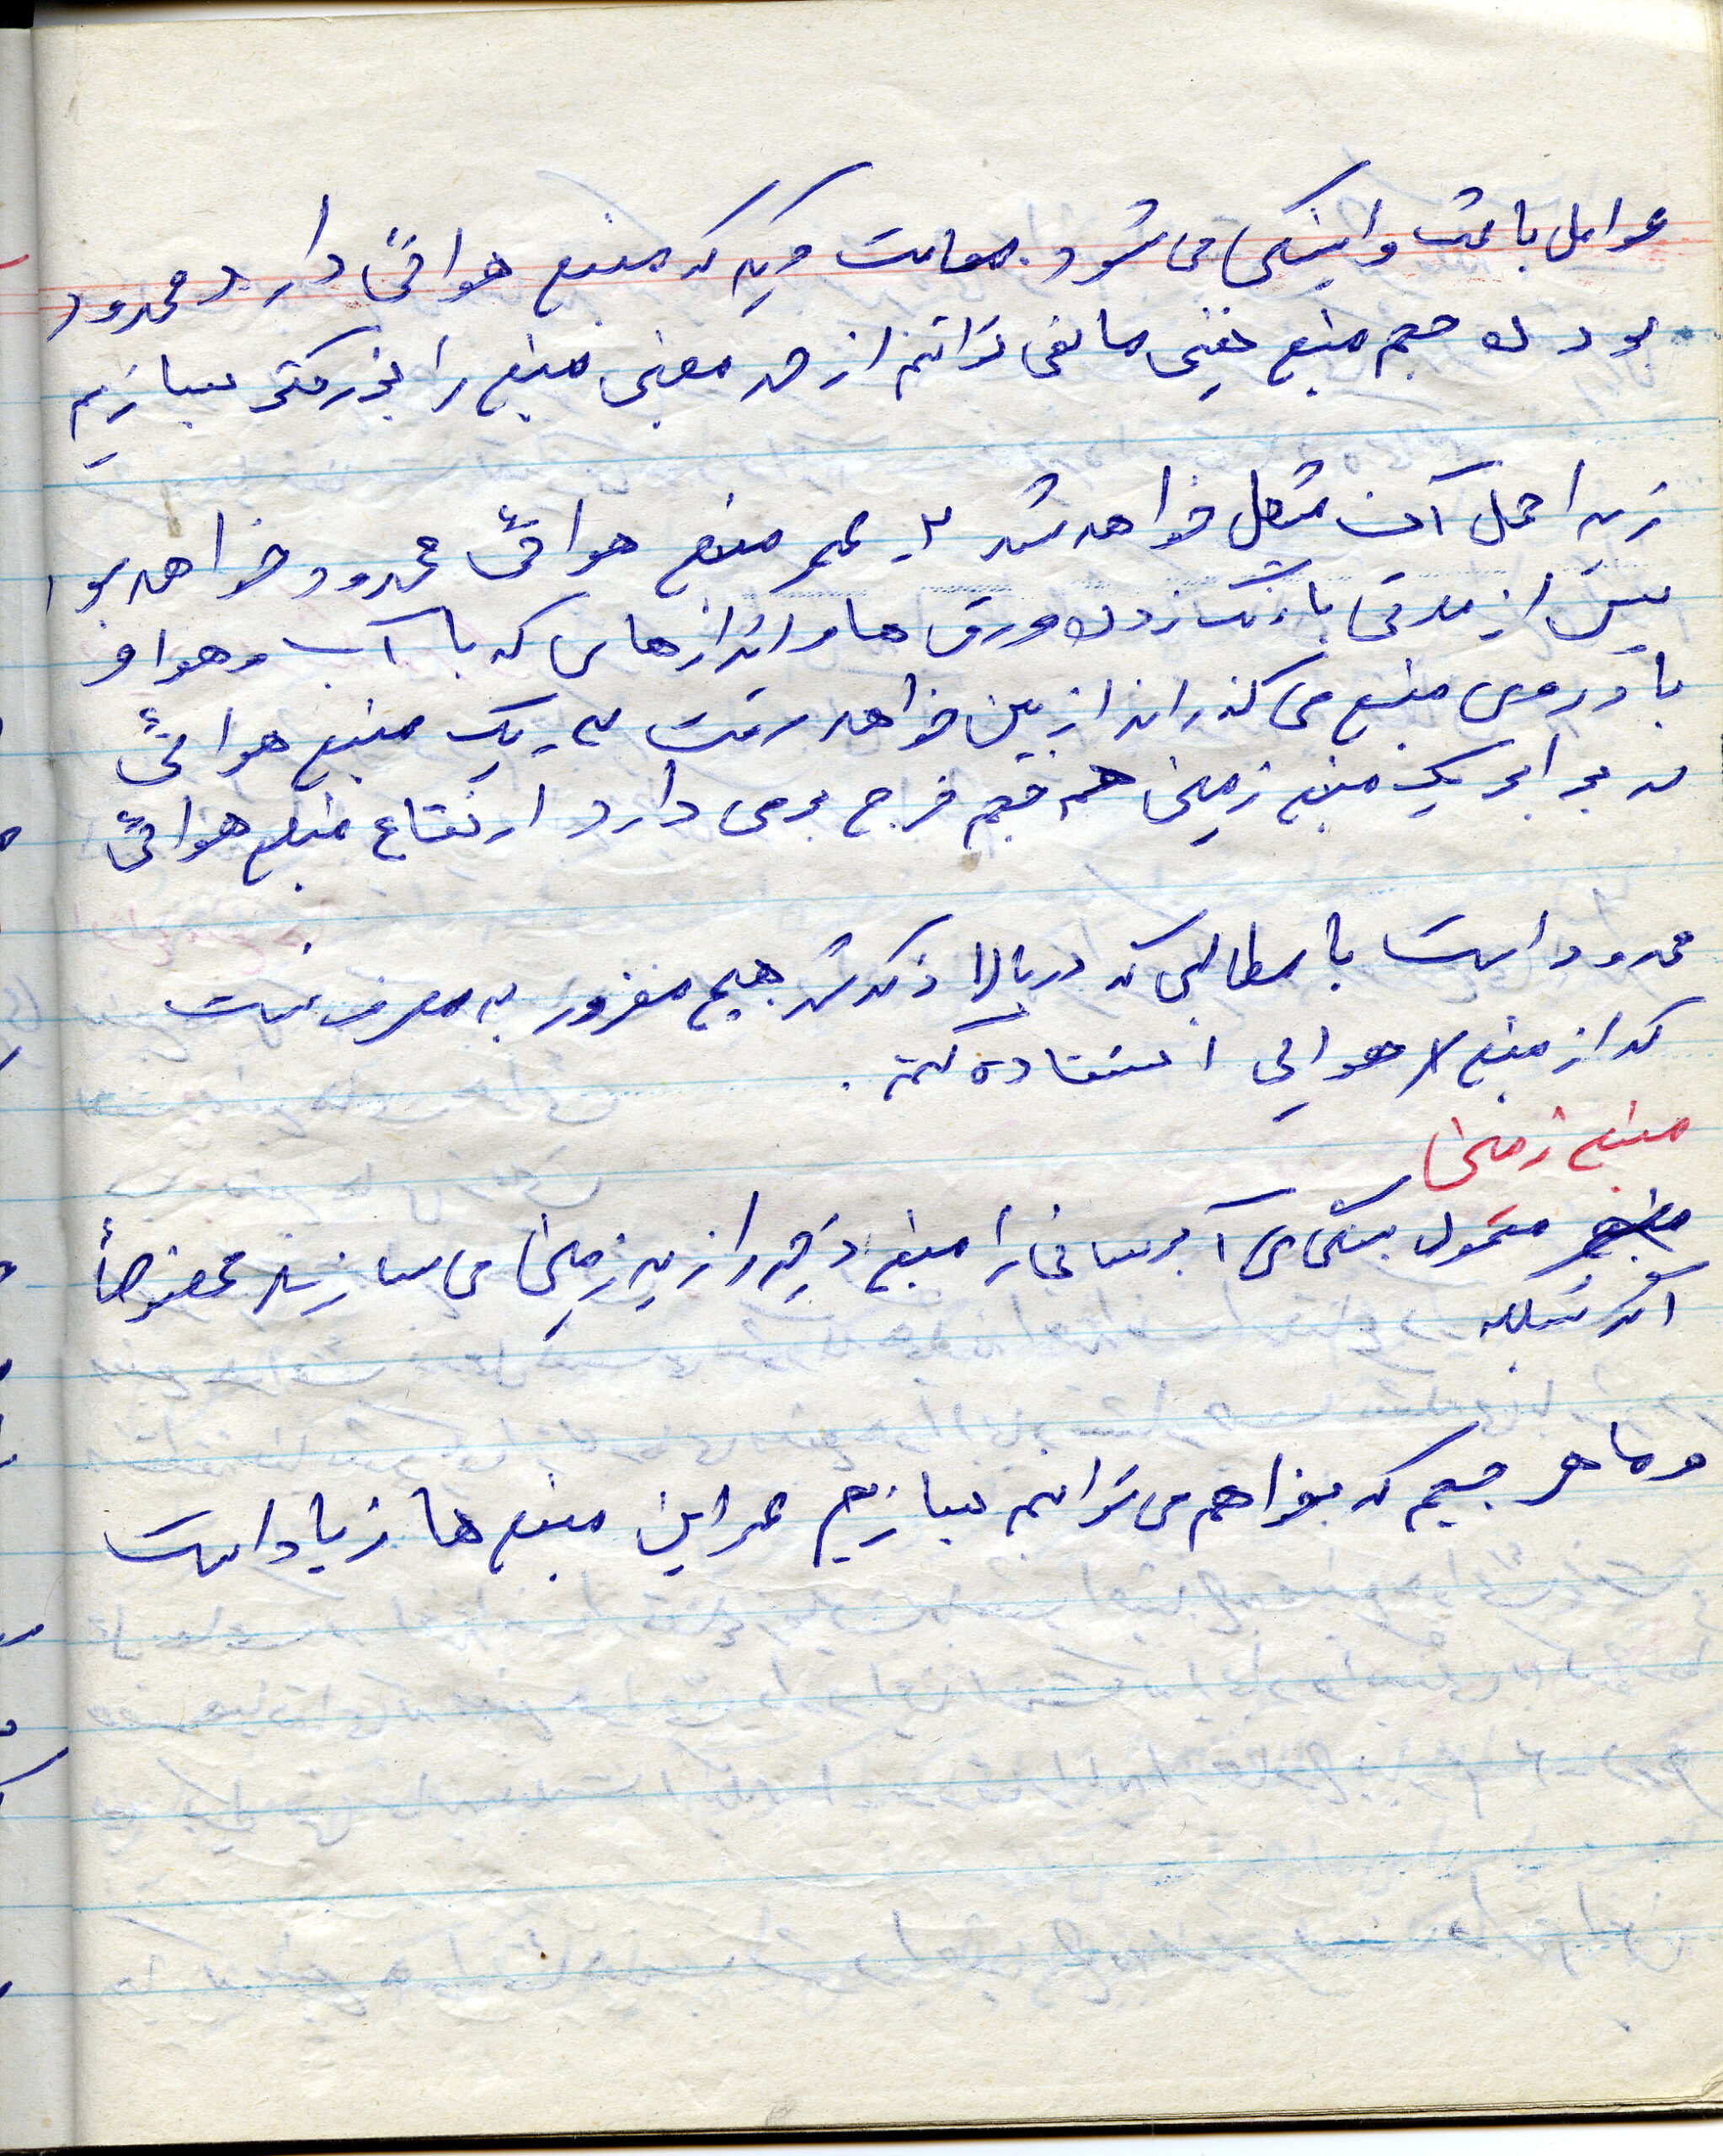 عوامل باعث واینکی می شود. معایب دیگر که منبع هوائی دارد محدود
بودن حجم منبع یعنی ما نمی توانیم از حد معینی منبع را بزرگتر بسازیم
زیرا حمل آن مشکل خواهد شد عمر منبع هوائی محدود خواهد بود
پس از مدتی با زنگ زدن ورق ها و اندازهای که با آب و هوا و
باد روی منبع می گذراند از بین خواهد رفت یک منبع هوائی
در برابر یک منبع زمینی هم حجم خرج بری دارد ارتفاع منبع هوائی
محدود است با مطالبی که در بالا ذکر شد هیچ مقرون به صرفه نیست
که از منبع هوایی استفاده کنیم.
منبع زمینی
معمولا شبکه آبرسانی را منبع ذخیره را زیر زمینی می سازند مخصوصاً
اگر شبکه
و ما هر حجم که بخواهم می توانیم بسازیم عمر این منبع ها زیاد است